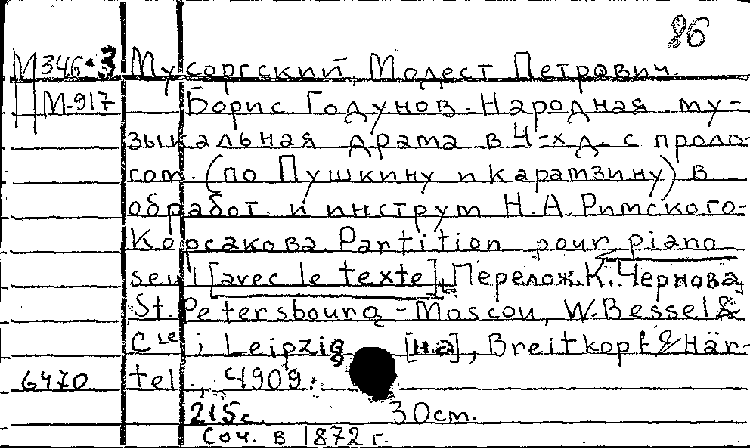 86
М346-3 Мусоргский, Модест Петрович.
М-917 Борис Годунов. Народная му-
зыкальная драма в 4-х д. с проло-
гом. (по Пушкину и Карамзину) в
обработ. и инструм Н.А. Римского-
Корсакова. Partition pour piano
seul [avec le texte]. Перелож. К. Чернова.
St. Petersbourg - Moscou, W. Bessel &
Cie; Leipzig [на], Breitkopf & Här-
6470 tel., 1909.
215с. 30см.
Соч. в 1872 г.